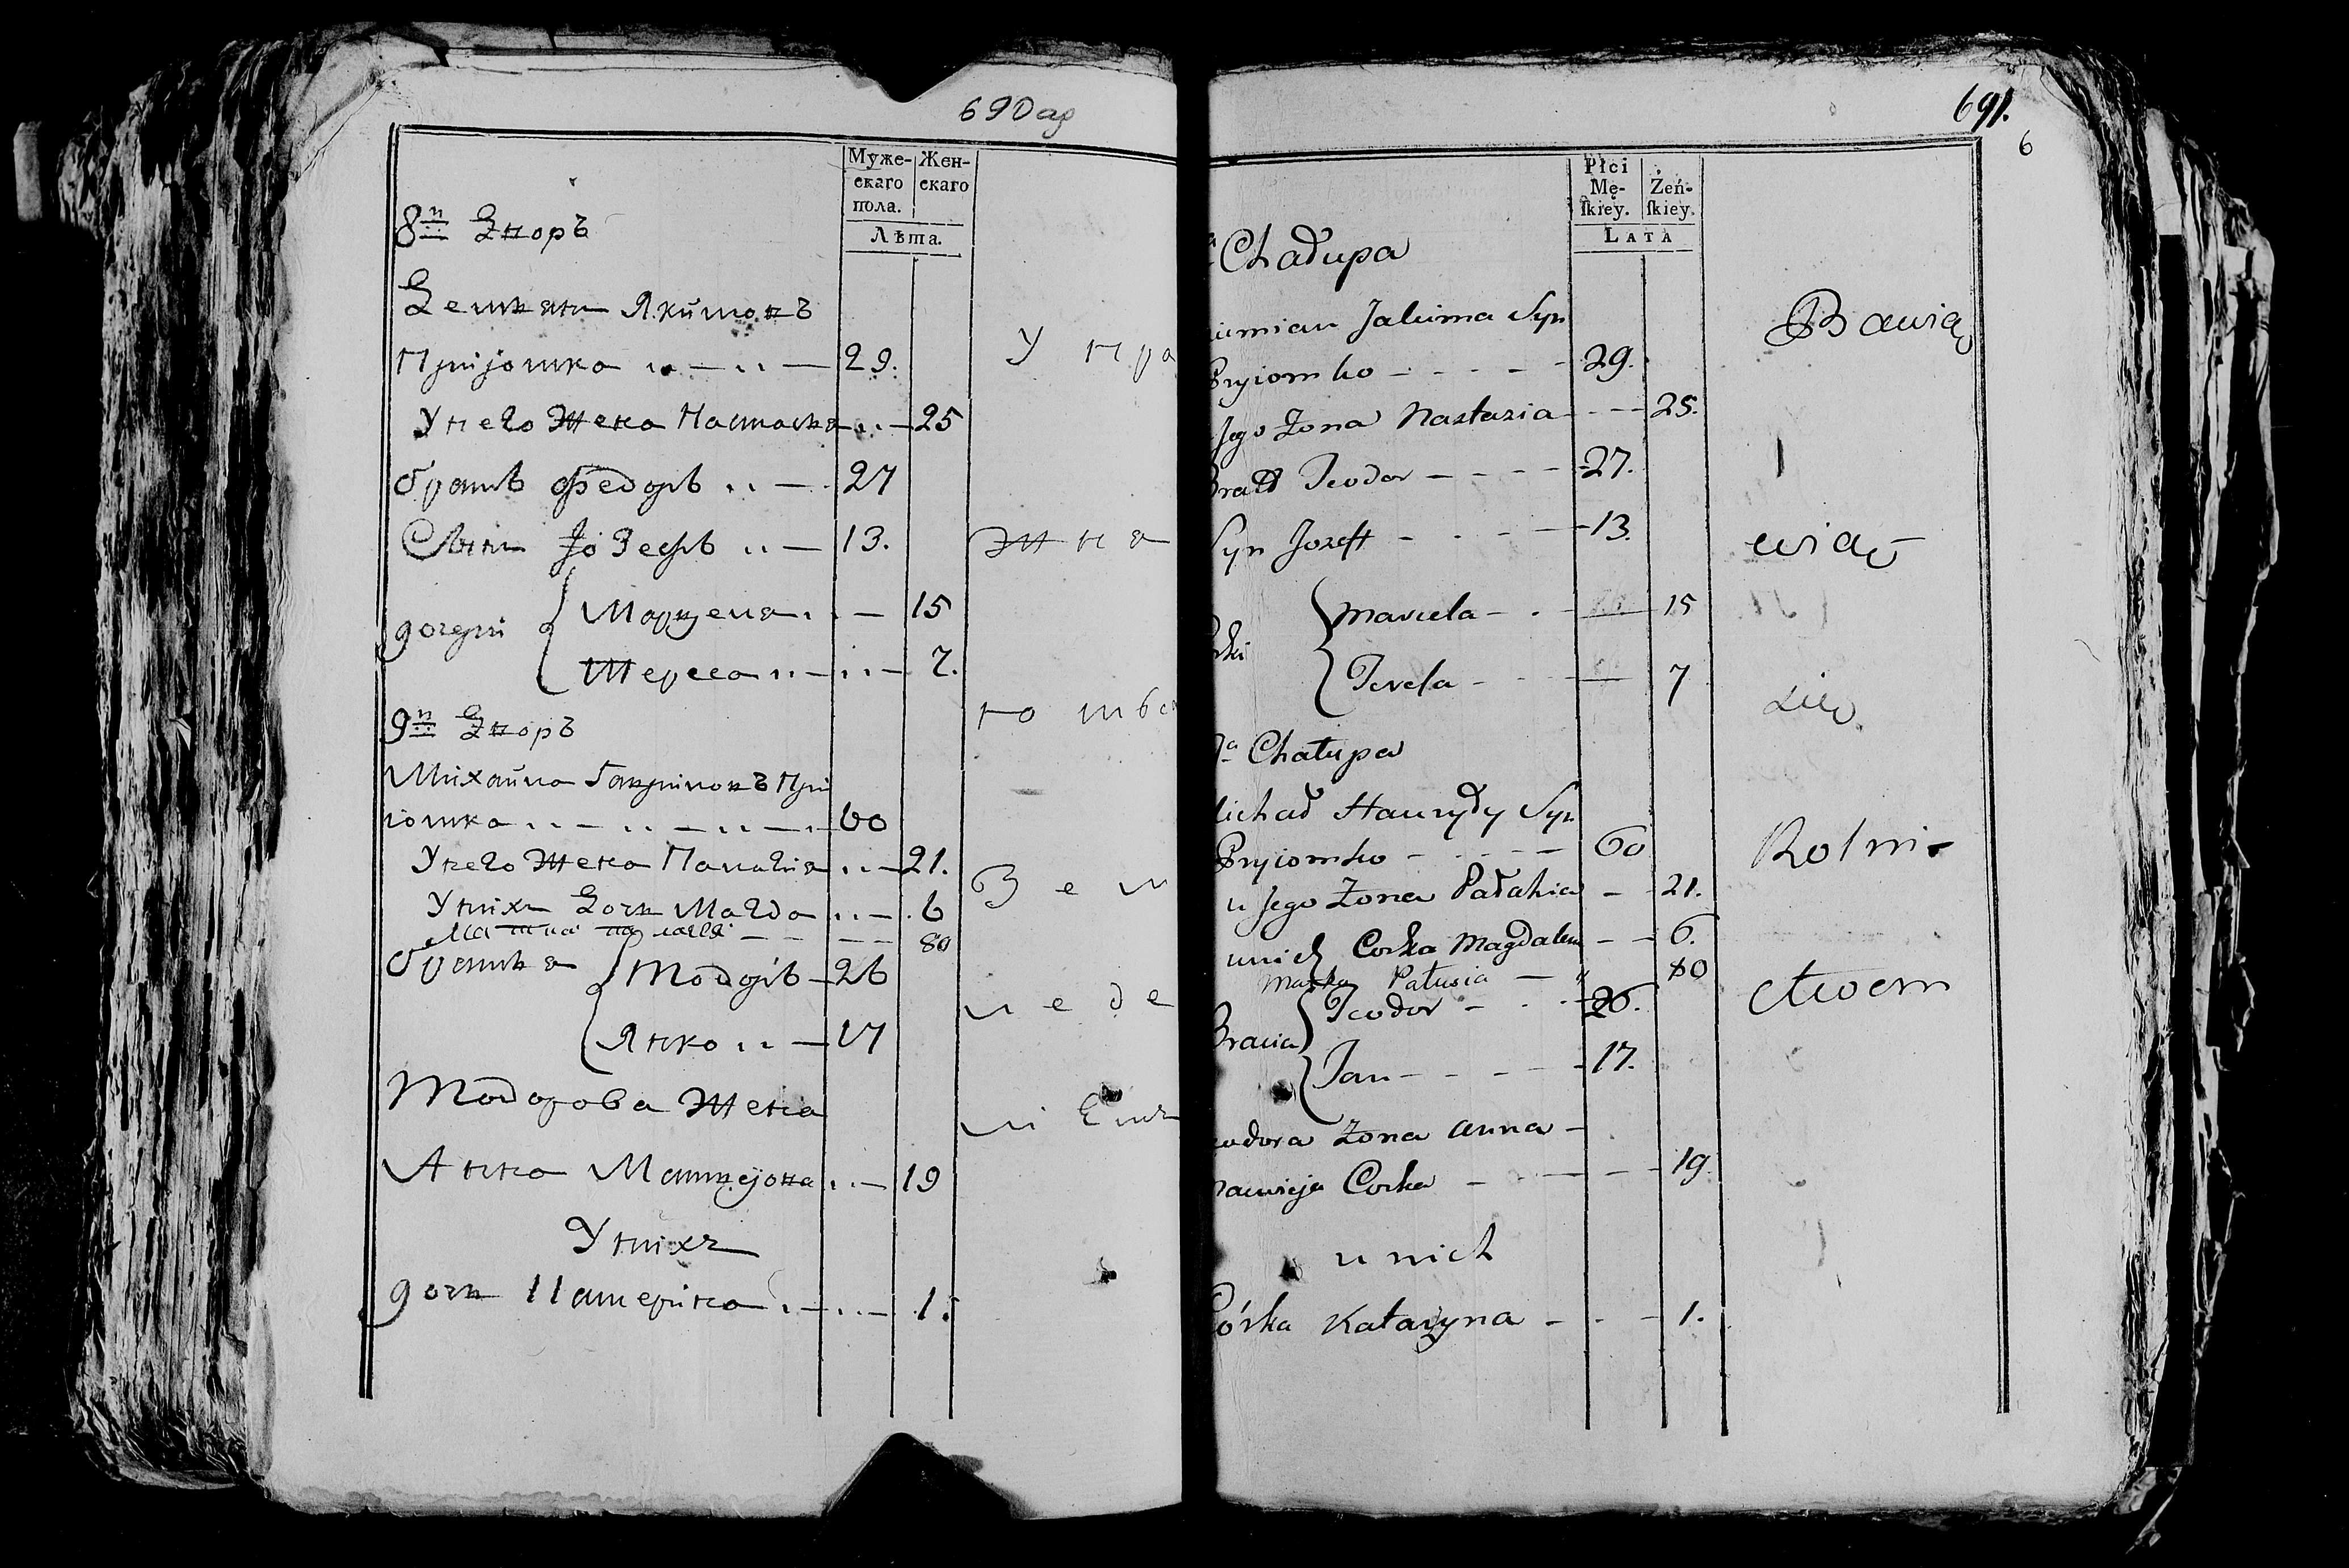 690 об
Муже-
скаго
пола.
Жен-
скаго
Лѣта.
8й Дворъ
Демянъ Якимовъ
Прііомко 29.
У него Жена Настасья 25
братъ Федоръ 27
Сынъ Іозефъ 13.
дочери Марцеля 15
Тереса 7.
9й Дворъ
Михайла Гавриловъ Прі
іомко 60
У него Жена Палагія 21.
У нихъ Дочь Магда 6
80
братья Тодоръ 26
Янко 17
Тодорова Жена
Анна Матвеjова 19
У нихъ
дочь Катерина 1.
У пра
жня
ю тьс
Зем
леде
691.
6
Płci
Mę-
skiey.
Żeń-
skiey.
LATA
Chałupa
iemian Jakima Syn
Pryiomko 29.
Jego Zona Nastazia 25.
Bratt Teodor 27.
Syn Jozeff 13.
Marcela 15
Teresa 7
9a Chałupa
Michał Hauryły Syn
Pryiomko 60
u Jego Zona Pałahia 21.
u nich Corka Magdalena 6.
Matka Palusia 80
Bracia Teodor 26.
Jan 17.
eodora Zona Anna
Macwieja Corka 19.
u nich
Córka Katarzyna 1.
Bawią
wią
Się
Rolni-
ctwem